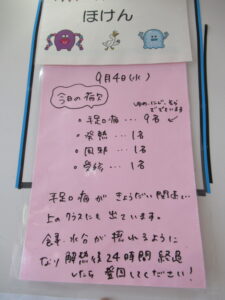 ほけん
9月4日(水)
今日の病欠
手足口病…9名
発熱…1名
風邪…1名
受診…1名
手足口病がきょうだい関係で
上のクラスにも出ています。
食事・水分が摂れるように
なり解熱後24時間経過
したら登園してください!